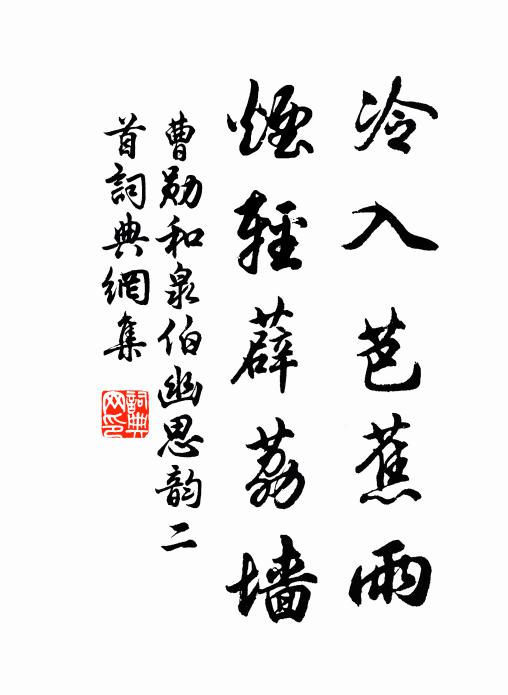 冷入芭蕉雨
煙輕薜荔墻
曹勛和泉伯幽思韵二
首詞典網集
詞典网印